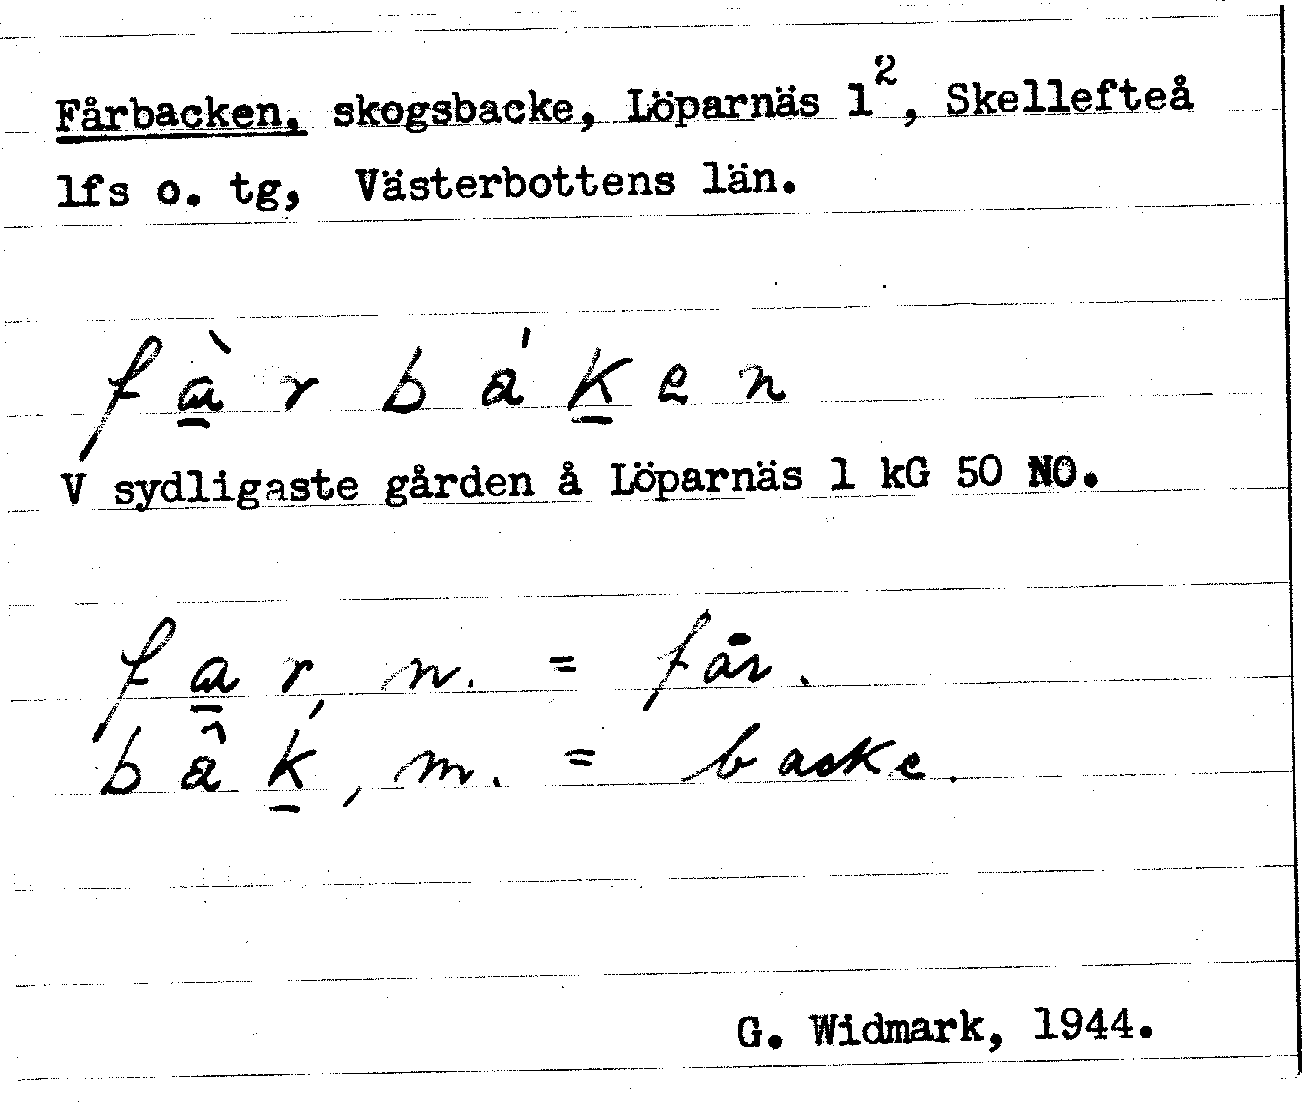 Fårbacken, skogsbacke, Löparnäs 1², Skellefteå
lfs o. tg, Västerbottens län.
fà̲rbák̲en
V sydligaste gården å Löparnäs 1 kG 50 NO.
fa̲r, n. = får.
bâk̲, m. = backe.
G. Widmark, 1944.